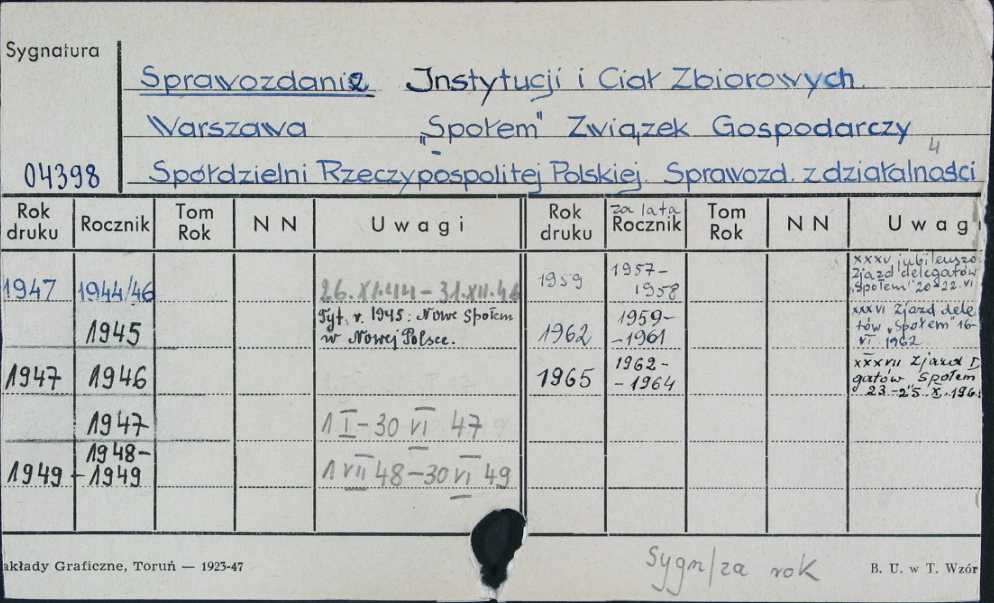 Sygnatura
Sprawozdanie Instytucji i Ciał Zbiorowych.
Warszawa „Społem" Związek Gospodarczy
4
04398 Spółdzielni Rzeczypospolitej Polskiej. Sprawozd. z działalności
Rok druku Rocznik Tom Rok NN Uwagi Rok druku za lata Rocznik Tom Rok NN Uwagi
1947 1944/46 26.XI.44 – 31.XII.46 1959 1957– 1958 XXXV jubileuszo zjazd delegatów „Społem" 20-22.VI
1945 Tyt. r. 1945: Nowe Społem w Nowej Polsce. 1962 1959– –1961 XXXVI zjazd dele tów „Społem" 16- VI 1962
1947 1946 1965 1962– –1964 XXXVII zjazd gatów Społem 23–25.X.196
1947 1 I – 30 VI 47
1949 1948– –1949 1 VII 48 – 30 VI 49
akłady Graficzne, Toruń — 1923-47 Sygn/za rok B. U. w T. Wzór